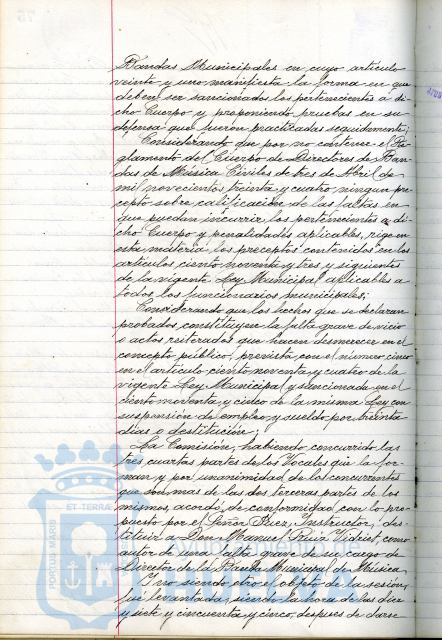 Bandas Municipales en cuyo artículo
veinte y uno manifiesta la forma en que
deben ser sancionados los pertenecientes a di-
cho Cuerpo y proponiendo pruebas en su
defensa que fueron practicadas seguidamente;
Considerando que por no contener el Re-
glamento del Cuerpo de Directores de Ban-
das de Música Civiles de tres de Abril de
mil novecientos treinta y cuatro ningun pre-
cepto sobre calificación de las faltas en
que puedan incurrir los pertenecientes a di-
cho Cuerpo y penalidades aplicables, rige en
esta materia los preceptos contenidos en los
artículos ciento noventa y tres y siguientes
de la vigente Ley Municipal aplicables a
todos los funcionarios municipales;
Considerando que los hechos que se declaran
probados, constituyen la falta grave de vicio
o actos reiterados que hacen desmerecer en el
concepto público, prevista con el número cinco
en el artículo ciento noventa y cuatro de la
vigente Ley Municipal y sancionada en el
ciento noventa y cinco de la misma Ley con
suspensión de empleo y sueldo por treinta
dias o destitución;
La Comisión, habiendo concurrido las
tres cuartas partes de los Vocales que la for-
man y por unanimidad de los concurrentes
que son mas de las dos terceras partes de los
mismos, acordó de conformidad con lo pro-
puesto por el Señor Juez Instructor, des-
tituir a Don Manuel Ruiz Vidriet, como
autor de una falta grave de su cargo de
Director de la Banda Municipal de Música.
Y no siendo otro el objeto de la sesión,
fué levantada, siendo la hora de las diez
y siete y cincuenta y cinco, despues de darse
PORTUS MARIS
ET TERRÆ